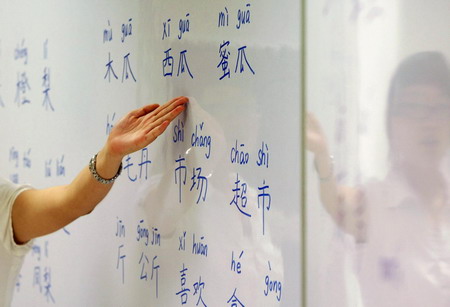 lí mù guā xī guā mì guā
橙 梨 木瓜 西瓜 蜜瓜
shì chǎng chāo shì
毛丹 市场 超市
jīn gōng jīn xǐ huān hé gòng
斤 公斤 喜欢 盒